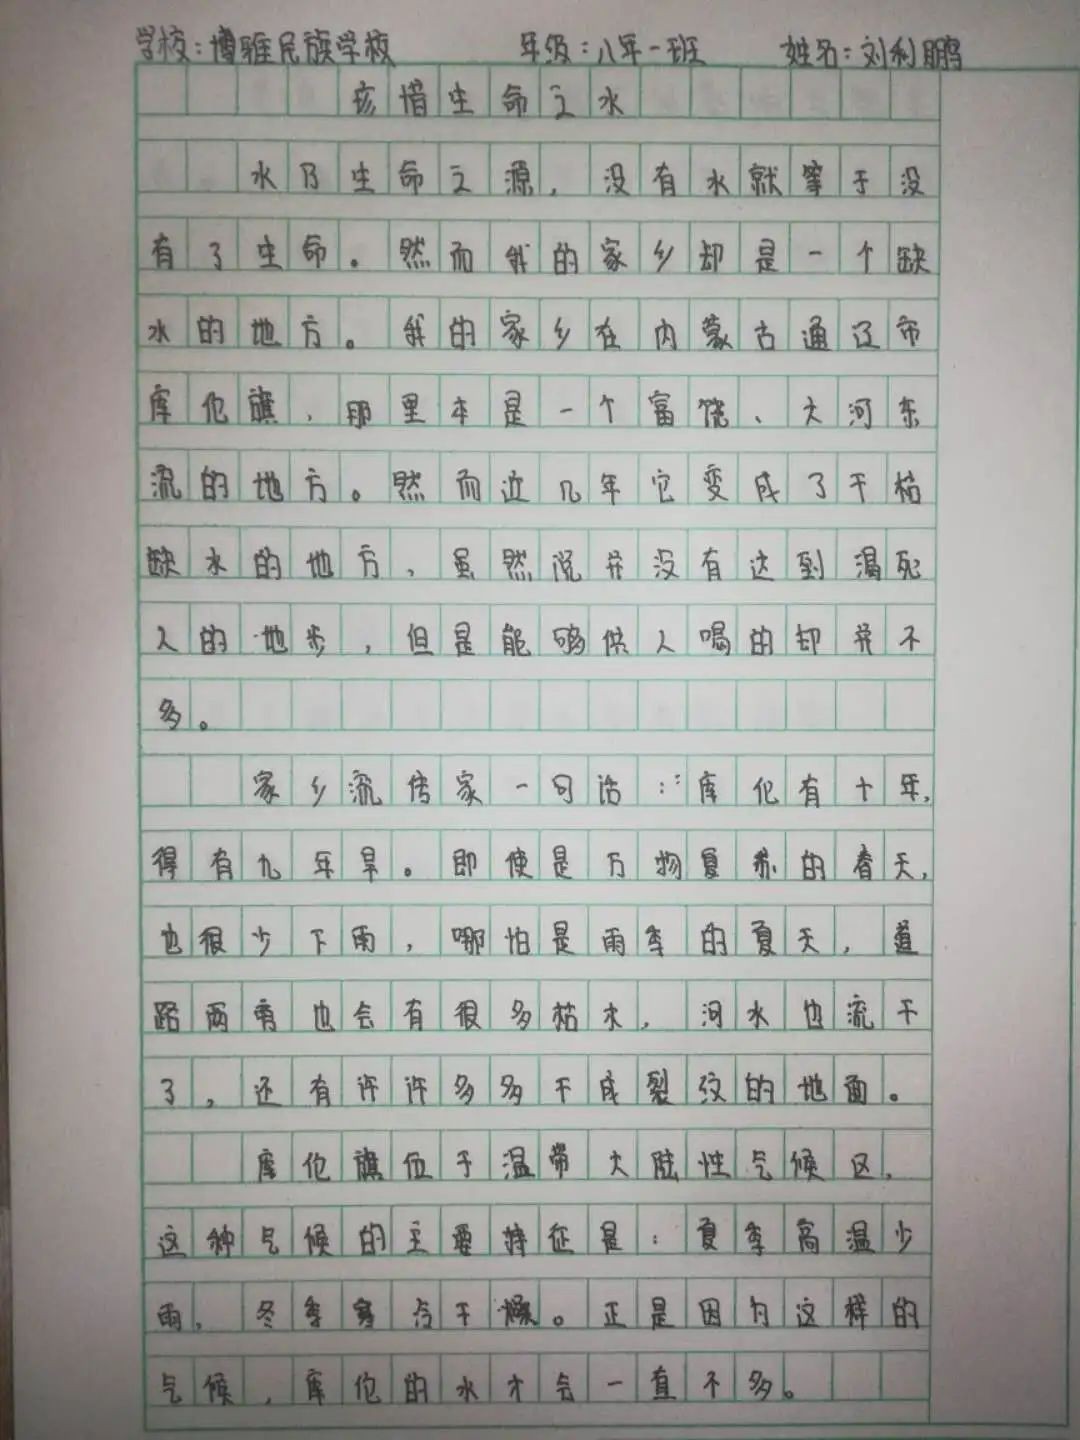 学校：博雅民族学校 年级：八年一班 姓名：刘利鹏
珍惜生命之水
水乃生命之源，没有水就等于没
有了生命。然而我的家乡却是一个缺
水的地方。我的家乡在内蒙古通辽市
库伦旗，那里本是一个富饶、大河东
流的地方。然而近几年它变成了干枯
缺水的地方，虽然说并没有达到渴死
人的地步，但是能够供人喝的却并不
多。
家乡流传家一句话：“库伦有十年，
得有九年旱。即使是万物复苏的春天，
也很少下雨，哪怕是雨季的夏天，道
路两旁也会有很多枯木，河水也流干
了，还有许许多多干成裂纹的地面。
库伦旗位于温带大陆性气候区，
这种气候的主要特征是：夏季高温少
雨，冬季寒冷干燥。正是因为这样的
气候，库伦的水才会一直不多。